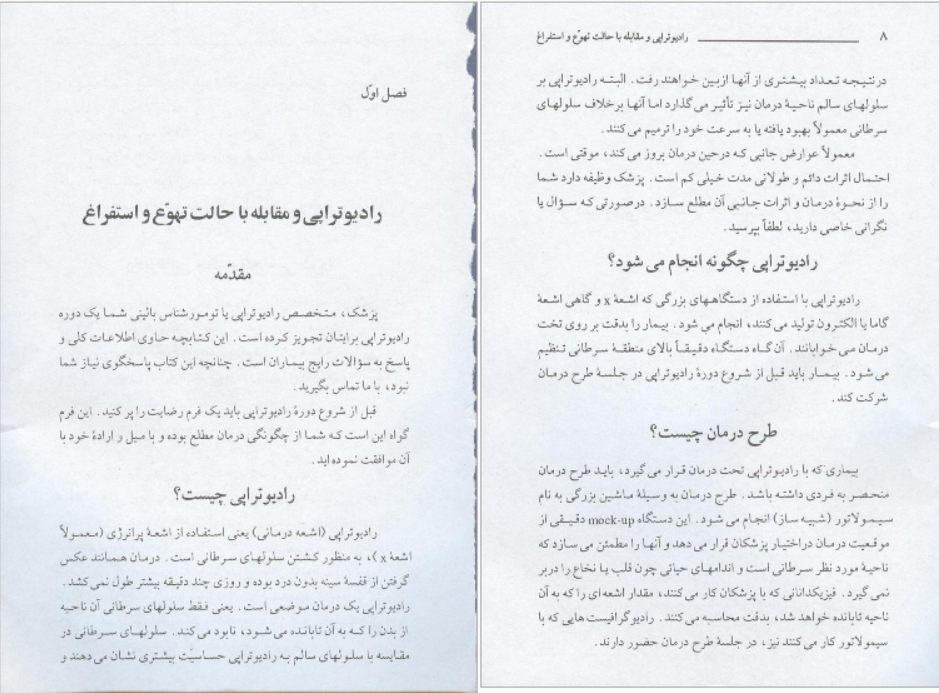 فصل اول
رادیوتراپی و مقابله با حالت تهوّع و استفراغ
مقدّمه
پزشک، متخصص رادیوتراپی یا تومورشناس بالینی شما یک دوره
رادیوتراپی برایتان تجویز کرده است. این کتابچه حاوی اطلاعات کلی و
پاسخ به سؤالات رایج بیماران است. چنانچه این کتاب پاسخگوی نیاز شما
نبود، با ما تماس بگیرید.
قبل از شروع دورهٔ رادیوتراپی باید یک فرم رضایت را پر کنید. این فرم
گواه این است که شما از چگونگی درمان مطلع بوده و با میل و ارادهٔ خود با
آن موافقت نموده اید.
رادیوتراپی چیست؟
رادیوتراپی (اشعه درمانی) یعنی استفاده از اشعهٔ پرانرژی (معمولاً
اشعهٔ x)، به منظور کشتن سلولهای سرطانی است. درمان همانند عکس
گرفتن از قفسهٔ سینه بدون درد بوده و روزی چند دقیقه بیشتر طول نمی کشد.
رادیوتراپی یک درمان موضعی است. یعنی فقط سلولهای سرطانی آن ناحیه
از بدن را که به آن تابانده می شود، نابود می کند. سلولهای سرطانی در
مقایسه با سلولهای سالم به رادیوتراپی حساسیّت بیشتری نشان می دهند و
۸ رادیوتراپی و مقابله با حالت تهوّع و استفراغ
درنتیجه تعداد بیشتری از آنها ازبین خواهند رفت. البته رادیوتراپی بر
سلولهای سالم ناحیهٔ درمان نیز تأثیر می گذارد اما آنها برخلاف سلولهای
سرطانی معمولاً بهبود یافته یا به سرعت خود را ترمیم می کنند.
معمولاً عوارض جانبی که درحین درمان بروز می کند، موقتی است.
احتمال اثرات دائم و طولانی مدت خیلی کم است. پزشک وظیفه دارد شما
را از نحوهٔ درمان و اثرات جانبی آن مطلع سازد. درصورتی که سؤال یا
نگرانی خاصی دارید، لطفاً بپرسید.
رادیوتراپی چگونه انجام می شود؟
رادیوتراپی با استفاده از دستگاههای بزرگی که اشعهٔ x و گاهی اشعهٔ
گاما یا الکترون تولید می کنند، انجام می شود. بیمار را بدقت بر روی تخت
درمان می خوابانند. آن گاه دستگاه دقیقاً بالای منطقهٔ سرطانی تنظیم
می شود. بیمار باید قبل از شروع دورهٔ رادیوتراپی در جلسهٔ طرح درمان
شرکت کند.
طرح درمان چیست؟
بیماری که با رادیوتراپی تحت درمان قرار می گیرد، باید طرح درمان
منحصر به فردی داشته باشد. طرح درمان به وسیلهٔ ماشین بزرگی به نام
سیمولاتور (شبیه ساز) انجام می شود. این دستگاه mock-up دقیقی از
موقعیت درمان دراختیار پزشکان قرار می دهد و آنها را مطمئن می سازد که
ناحیهٔ مورد نظر سرطانی است و اندامهای حیاتی چون قلب یا نخاع را دربر
نمی گیرد. فیزیکدانانی که با پزشکان کار می کنند، مقدار اشعه ای را که به آن
ناحیه تابانده خواهد شد، بدقت محاسبه می کنند. رادیوگرافیست هایی که با
سیمولاتور کار می کنند نیز، در جلسهٔ طرح درمان حضور دارند.